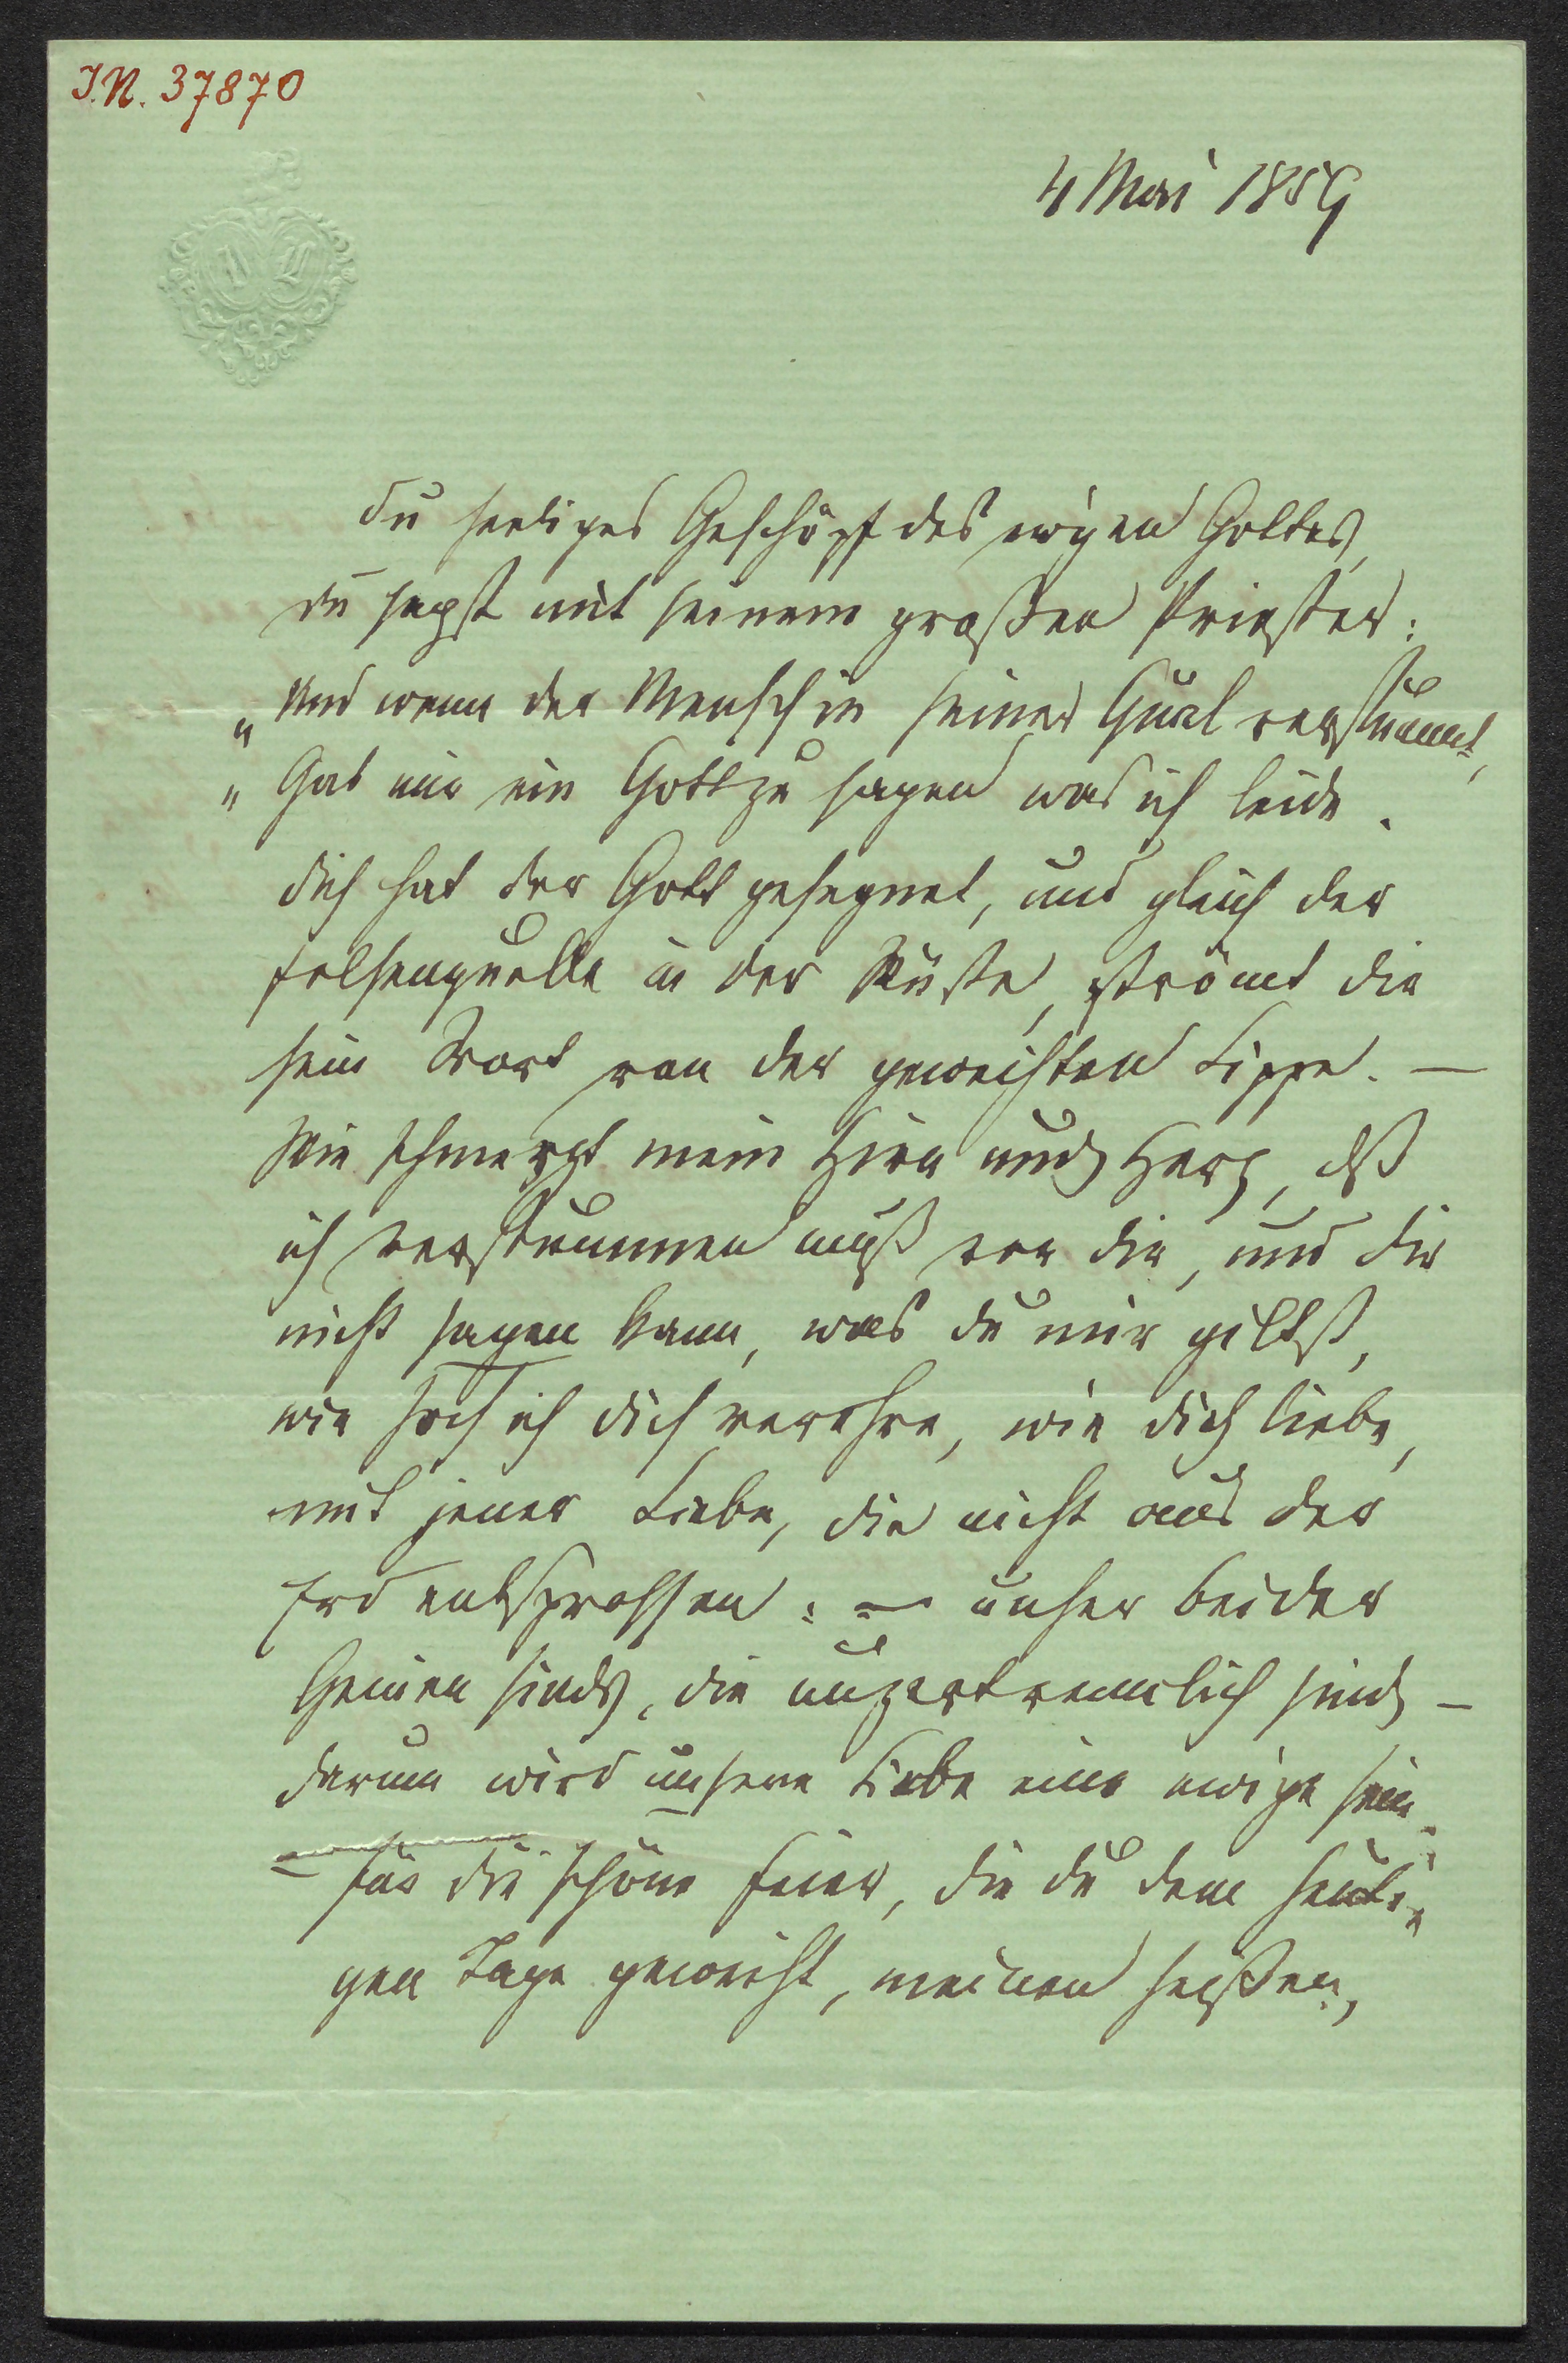 I.N. 37870
4 Mai 1859
Du seeliges Geschöpf des ewigen Gottes,
du sagst mit seinem großen Priester:
"Und wenn der Mensch in seiner Qual verstummt,
"Gab mir ein Gott zu sagen was ich leide.
Dich hat der Gott gesegnet, und gleich der
Felsenquelle in der Wüste, strömt dir
sein Wort von der geweihten Lippe. —
Wie schmerzt mein Hirn und Herz, dß
ich verstummen muß vor dir, und dir
nicht sagen kann, was du mir giltst,
wie hoch ich dich verehre, wie dich liebe,
mit jener Liebe, die nicht aus der
Erd entsprossen: — unser beider
Genien sinds, die unzertrennlich sind —
darum wird unsere Liebe eine ewige sein.
— Für die schöne Feier, die du dem heuti-
gen Tage geweiht, meinen heißen,